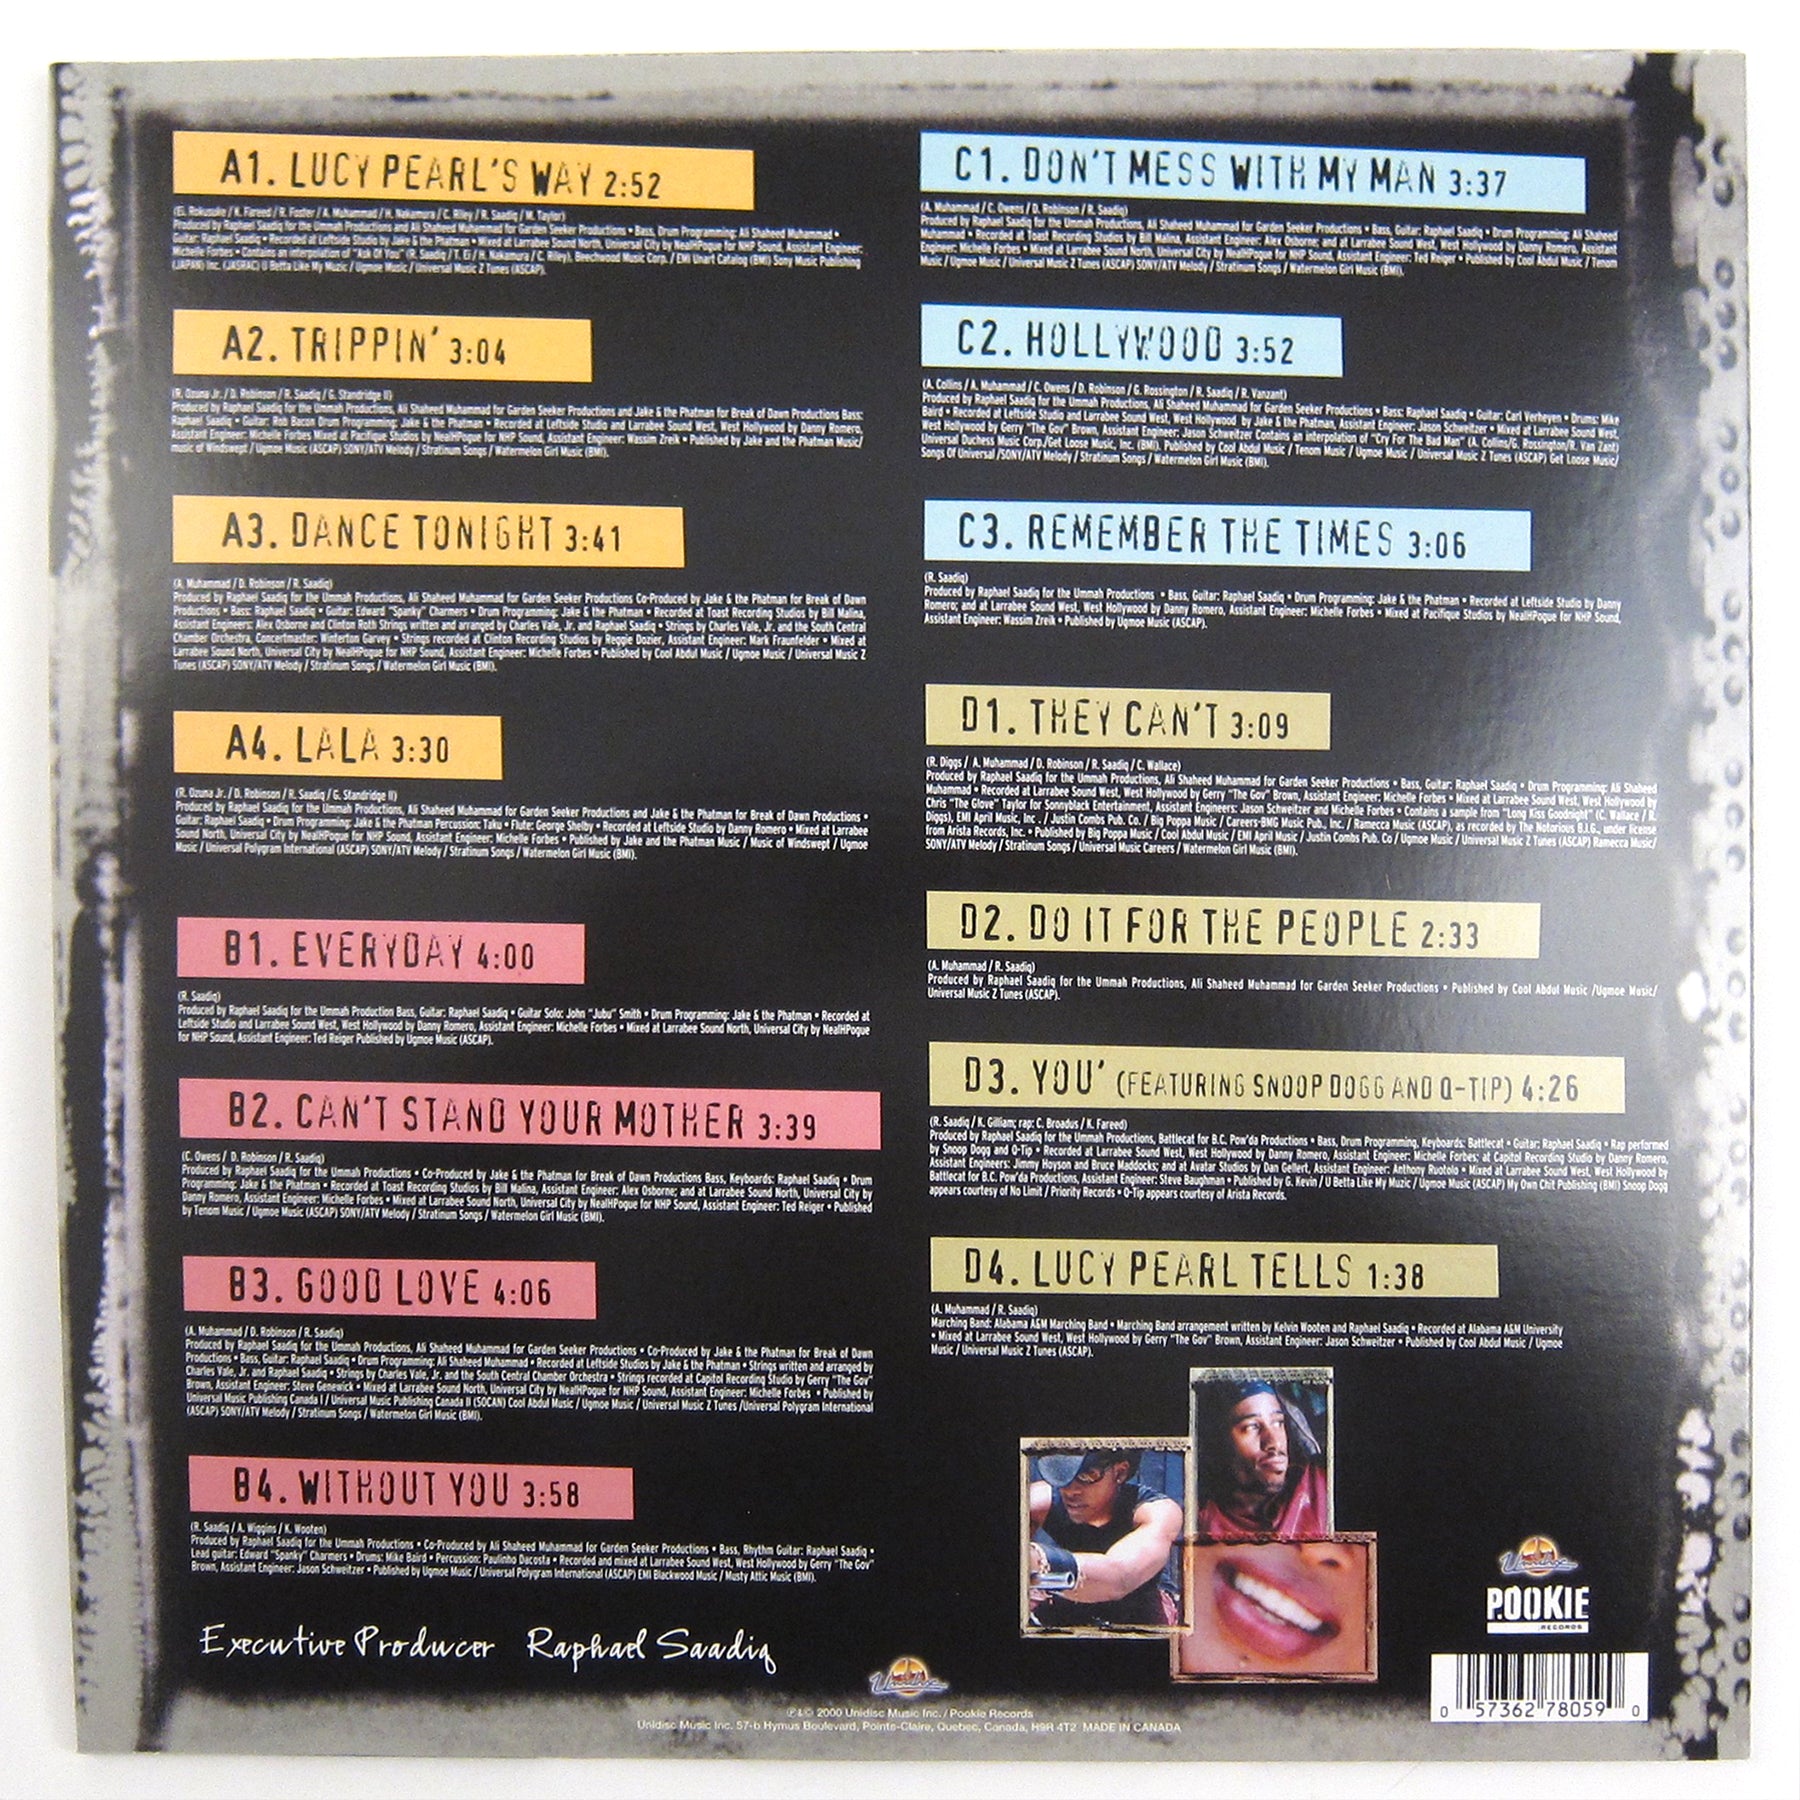 A1. LUCY PEARL'S WAY 2:52
(Ei. Rokusuke / K. Fareed / R. Foster / A. Muhammad / H. Nakamura / C. Riley / R. Saadiq / M. Taylor)
Produced by Raphael Saadiq for the Ummah Productions and Ali Shaheed Muhammad for Garden Seeker Productions • Bass, Drum Programming: Ali Shaheed Muhammad •
Guitar: Raphael Saadiq • Recorded at Leftside Studio by Jake & the Phatman • Mixed at Larrabee Sound North, Universal City by NealHPogue for NHP Sound, Assistant Engineer:
Michelle Forbes • Contains an interpolation of "Ask Of You" (R. Saadiq / T. Ei / H. Nakamura / C. Riley), Beechwood Music Corp. / EMI Unart Catalog (BMI) Sony Music Publishing
(JAPAN) Inc. (JASRAC) U Betta Like My Muzic / Ugmoe Music / Universal Music Z Tunes (ASCAP).
A2. TRIPPIN' 3:04
(R. Ozuna Jr. / D. Robinson / R. Saadiq / G. Standridge II)
Produced by Raphael Saadiq for the Ummah Productions, Ali Shaheed Muhammad for Garden Seeker Productions and Jake & the Phatman for Break of Dawn Productions Bass:
Raphael Saadiq • Guitar: Rob Bacon Drum Programming: Jake & the Phatman • Recorded at Leftside Studio and Larrabee Sound West, West Hollywood by Danny Romero,
Assistant Engineer: Michelle Forbes Mixed at Pacifique Studios by NealHPogue for NHP Sound, Assistant Engineer: Wassim Zreik • Published by Jake and the Phatman Music/
music of Windswept / Ugmoe Music (ASCAP) SONY/ATV Melody / Stratinum Songs / Watermelon Girl Music (BMI).
A3. DANCE TONIGHT 3:41
(A. Muhammad / D. Robinson / R. Saadiq)
Produced by Raphael Saadiq for the Ummah Productions, Ali Shaheed Muhammad for Garden Seeker Productions Co-Produced by Jake & the Phatman for Break of Dawn
Productions • Bass: Raphael Saadiq • Guitar: Edward "Spanky" Charmers • Drum Programming: Jake & the Phatman • Recorded at Toast Recording Studios by Bill Malina,
Assistant Engineers: Alex Osborne and Clinton Roth Strings written and arranged by Charles Vale, Jr. and Raphael Saadiq • Strings by Charles Vale, Jr. and the South Central
Chamber Orchestra, Concertmaster: Winterton Garvey • Strings recorded at Clinton Recording Studios by Reggie Dozier, Assistant Engineer: Mark Fraunfelder • Mixed at
Larrabee Sound North, Universal City by NealHPogue for NHP Sound, Assistant Engineer: Michelle Forbes • Published by Cool Abdul Music / Ugmoe Music / Universal Music Z
Tunes (ASCAP) SONY/ATV Melody / Stratinum Songs / Watermelon Girl Music (BMI).
A4. LALA 3:30
(R. Ozuna Jr. / D. Robinson / R. Saadiq / G. Standridge II)
Produced by Raphael Saadiq for the Ummah Productions, Ali Shaheed Muhammad for Garden Seeker Productions and Jake & the Phatman for Break of Dawn Productions •
Guitar: Raphael Saadiq • Drum Programming: Jake & the Phatman Percussion: Taku • Flute: George Shelby • Recorded at Leftside Studio by Danny Romero • Mixed at Larrabee
Sound North, Universal City by NealHPogue for NHP Sound, Assistant Engineer: Michelle Forbes • Published by Jake and the Phatman Music / Music of Windswept / Ugmoe
Music / Universal Polygram International (ASCAP) SONY/ATV Melody / Stratinum Songs / Watermelon Girl Music (BMI).
B1. EVERYDAY 4:00
(R. Saadiq)
Produced by Raphael Saadiq for the Ummah Production Bass, Guitar: Raphael Saadiq • Guitar Solo: John "Jubu" Smith • Drum Programming: Jake & the Phatman • Recorded at
Leftside Studio and Larrabee Sound West, West Hollywood by Danny Romero, Assistant Engineer: Michelle Forbes • Mixed at Larrabee Sound North, Universal City by NealHPogue
for NHP Sound, Assistant Engineer: Ted Reiger Published by Ugmoe Music (ASCAP).
B2. CAN'T STAND YOUR MOTHER 3:39
(C. Owens / D. Robinson / R. Saadiq)
Produced by Raphael Saadiq for the Ummah Productions • Co-Produced by Jake & the Phatman for Break of Dawn Productions Bass, Keyboards: Raphael Saadiq • Drum
Programming: Jake & the Phatman • Recorded at Toast Recording Studios by Bill Malina, Assistant Engineer: Alex Osborne; and at Larrabee Sound North, Universal City by
Danny Romero, Assistant Engineer: Michelle Forbes • Mixed at Larrabee Sound North, Universal City by NealHPogue for NHP Sound, Assistant Engineer: Ted Reiger • Published
by Tenom Music / Ugmoe Music (ASCAP) SONY/ATV Melody / Stratinum Songs / Watermelon Girl Music (BMI).
B3. GOOD LOVE 4:06
(A. Muhammad / D. Robinson / R. Saadiq)
Produced by Raphael Saadiq for the Ummah Productions, Ali Shaheed Muhammad for Garden Seeker Productions • Co-Produced by Jake & the Phatman for Break of Dawn
Productions • Bass, Guitar: Raphael Saadiq • Drum Programming: Ali Shaheed Muhammad • Recorded at Leftside Studios by Jake & the Phatman • Strings written and arranged by
Charles Vale, Jr. and Raphael Saadiq • Strings by Charles Vale, Jr. and the South Central Chamber Orchestra • Strings recorded at Capitol Recording Studio by Gerry "The Gov"
Brown, Assistant Engineer: Steve Genewick • Mixed at Larrabee Sound North, Universal City by NealHPogue for NHP Sound, Assistant Engineer: Michelle Forbes • Published by
Universal Music Publishing Canada I / Universal Music Publishing Canada II (SOCAN) Cool Abdul Music / Ugmoe Music / Universal Music Z Tunes /Universal Polygram International
(ASCAP) SONY/ATV Melody / Stratinum Songs / Watermelon Girl Music (BMI).
B4. WITHOUT YOU 3:58
(R. Saadiq / A. Wiggins / K. Wooten)
Produced by Raphael Saadiq for the Ummah Productions • Co-Produced by Ali Shaheed Muhammad for Garden Seeker Productions • Bass, Rhythm Guitar: Raphael Saadiq •
Lead guitar: Edward "Spanky" Charmers • Drums: Mike Baird • Percussion: Paulinho Dacosta • Recorded and mixed at Larrabee Sound West, West Hollywood by Gerry "The Gov"
Brown, Assistant Engineer: Jason Schweitzer • Published by Ugmoe Music / Universal Polygram International (ASCAP) EMI Blackwood Music / Musty Attic Music (BMI).
Executive Producer Raphael Saadiq
C1. DON'T MESS WITH MY MAN 3:37
(A. Muhammad / C. Owens / D. Robinson / R. Saadiq)
Produced by Raphael Saadiq for the Ummah Productions, Ali Shaheed Muhammad for Garden Seeker Productions • Bass, Guitar: Raphael Saadiq • Drum Programming: Ali Shaheed
Muhammad • Recorded at Toast Recording Studios by Bill Malina, Assistant Engineer: Alex Osborne; and at Larrabee Sound West, West Hollywood by Danny Romero, Assistant
Engineer: Michelle Forbes • Mixed at Larrabee Sound North, Universal City by NealHPogue for NHP Sound, Assistant Engineer: Ted Reiger • Published by Cool Abdul Music / Tenom
Music / Ugmoe Music / Universal Music Z Tunes (ASCAP) SONY/ATV Melody / Stratinum Songs / Watermelon Girl Music (BMI).
C2. HOLLYWOOD 3:52
(A. Collins / A. Muhammad / C. Owens / D. Robinson / G. Rossington / R. Saadiq / R. Vanzant)
Produced by Raphael Saadiq for the Ummah Productions, Ali Shaheed Muhammad for Garden Seeker Productions • Bass: Raphael Saadiq • Guitar: Carl Verheyen • Drums: Mike
Baird • Recorded at Leftside Studio and Larrabee Sound West, West Hollywood by Jake & the Phatman, Assistant Engineer: Jason Schweitzer • Mixed at Larrabee Sound West,
West Hollywood by Gerry "The Gov" Brown, Assistant Engineer: Jason Schweitzer Contains an interpolation of "Cry For The Bad Man" (A. Collins/G. Rossington/R. Van Zant)
Universal Duchess Music Corp./Get Loose Music, Inc. (BMI). Published by Cool Abdul Music / Tenom Music / Ugmoe Music / Universal Music Z Tunes (ASCAP) Get Loose Music/
Songs Of Universal /SONY/ATV Melody / Stratinum Songs / Watermelon Girl Music (BMI).
C3. REMEMBER THE TIMES 3:06
(R. Saadiq)
Produced by Raphael Saadiq for the Ummah Productions • Bass, Guitar: Raphael Saadiq • Drum Programming: Jake & the Phatman • Recorded at Leftside Studio by Danny
Romero; and at Larrabee Sound West, West Hollywood by Danny Romero, Assistant Engineer: Michelle Forbes • Mixed at Pacifique Studios by NealHPogue for NHP Sound,
Assistant Engineer: Wassim Zreik • Published by Ugmoe Music (ASCAP).
D1. THEY CAN'T 3:09
(R. Diggs / A. Muhammad / D. Robinson / R. Saadiq / C. Wallace)
Produced by Raphael Saadiq for the Ummah Productions, Ali Shaheed Muhammad for Garden Seeker Productions • Bass, Guitar: Raphael Saadiq • Drum Programming: Ali Shaheed
Muhammad • Recorded at Larrabee Sound West, West Hollywood by Gerry "The Gov" Brown, Assistant Engineer: Michelle Forbes • Mixed at Larrabee Sound West, West Hollywood by
Chris "The Glove" Taylor for Sonnyblack Entertainment, Assistant Engineers: Jason Schweitzer and Michelle Forbes • Contains a sample from "Long Kiss Goodnight" (C. Wallace / R.
Diggs), EMI April Music, Inc . / Justin Combs Pub. Co. / Big Poppa Music / Careers-BMG Music Pub., Inc. / Ramecca Music (ASCAP), as recorded by The Notorious B.I.G., under license
from Arista Records, Inc. • Published by Big Poppa Music / Cool Abdul Music / EMI April Music / Justin Combs Pub. Co / Ugmoe Music / Universal Music Z Tunes (ASCAP) Ramecca Music/
SONY/ATV Melody / Stratinum Songs / Universal Music Careers / Watermelon Girl Music (BMI).
D2. DO IT FOR THE PEOPLE 2:33
(A. Muhammad / R. Saadiq)
Produced by Raphael Saadiq for the Ummah Productions, Ali Shaheed Muhammad for Garden Seeker Productions • Published by Cool Abdul Music /Ugmoe Music/
Universal Music Z Tunes (ASCAP).
D3. YOU' (FEATURING SNOOP DOGG AND Q-TIP) 4:26
(R. Saadiq / K. Gilliam; rap: C. Broadus / K. Fareed)
Produced by Raphael Saadiq for the Ummah Productions, Battlecat for B.C. Pow'da Productions • Bass, Drum Programming, Keyboards: Battlecat • Guitar: Raphael Saadiq • Rap performed
by Snoop Dogg and Q-Tip • Recorded at Larrabee Sound West, West Hollywood by Danny Romero, Assistant Engineer: Michelle Forbes; at Capitol Recording Studio by Danny Romero,
Assistant Engineers: Jimmy Hoyson and Bruce Maddocks; and at Avatar Studios by Dan Gellert, Assistant Engineer: Anthony Ruotolo • Mixed at Larrabee Sound West, West Hollywood by
Battlecat for B.C. Pow'da Productions, Assistant Engineer: Steve Baughman • Published by G. Kevin / U Betta Like My Muzic / Ugmoe Music (ASCAP) My Own Chit Publishing (BMI) Snoop Dogg
appears courtesy of No Limit / Priority Records • Q-Tip appears courtesy of Arista Records.
D4. LUCY PEARL TELLS 1:38
(A. Muhammad / R. Saadiq)
Marching Band: Alabama A&M Marching Band • Marching Band arrangement written by Kelvin Wooten and Raphael Saadiq • Recorded at Alabama A&M University
• Mixed at Larrabee Sound West, West Hollywood by Gerry "The Gov" Brown, Assistant Engineer: Jason Schweitzer • Published by Cool Abdul Music / Ugmoe
Music / Universal Music Z Tunes (ASCAP).
Unidisc
POOKIE
RECORDS
0 57362 78059 0
Unidisc
℗&© 2000 Unidisc Music Inc. / Pookie Records
Unidisc Music Inc. 57-b Hymus Boulevard, Pointe-Claire, Quebec, Canada, H9R 4T2 MADE IN CANADA